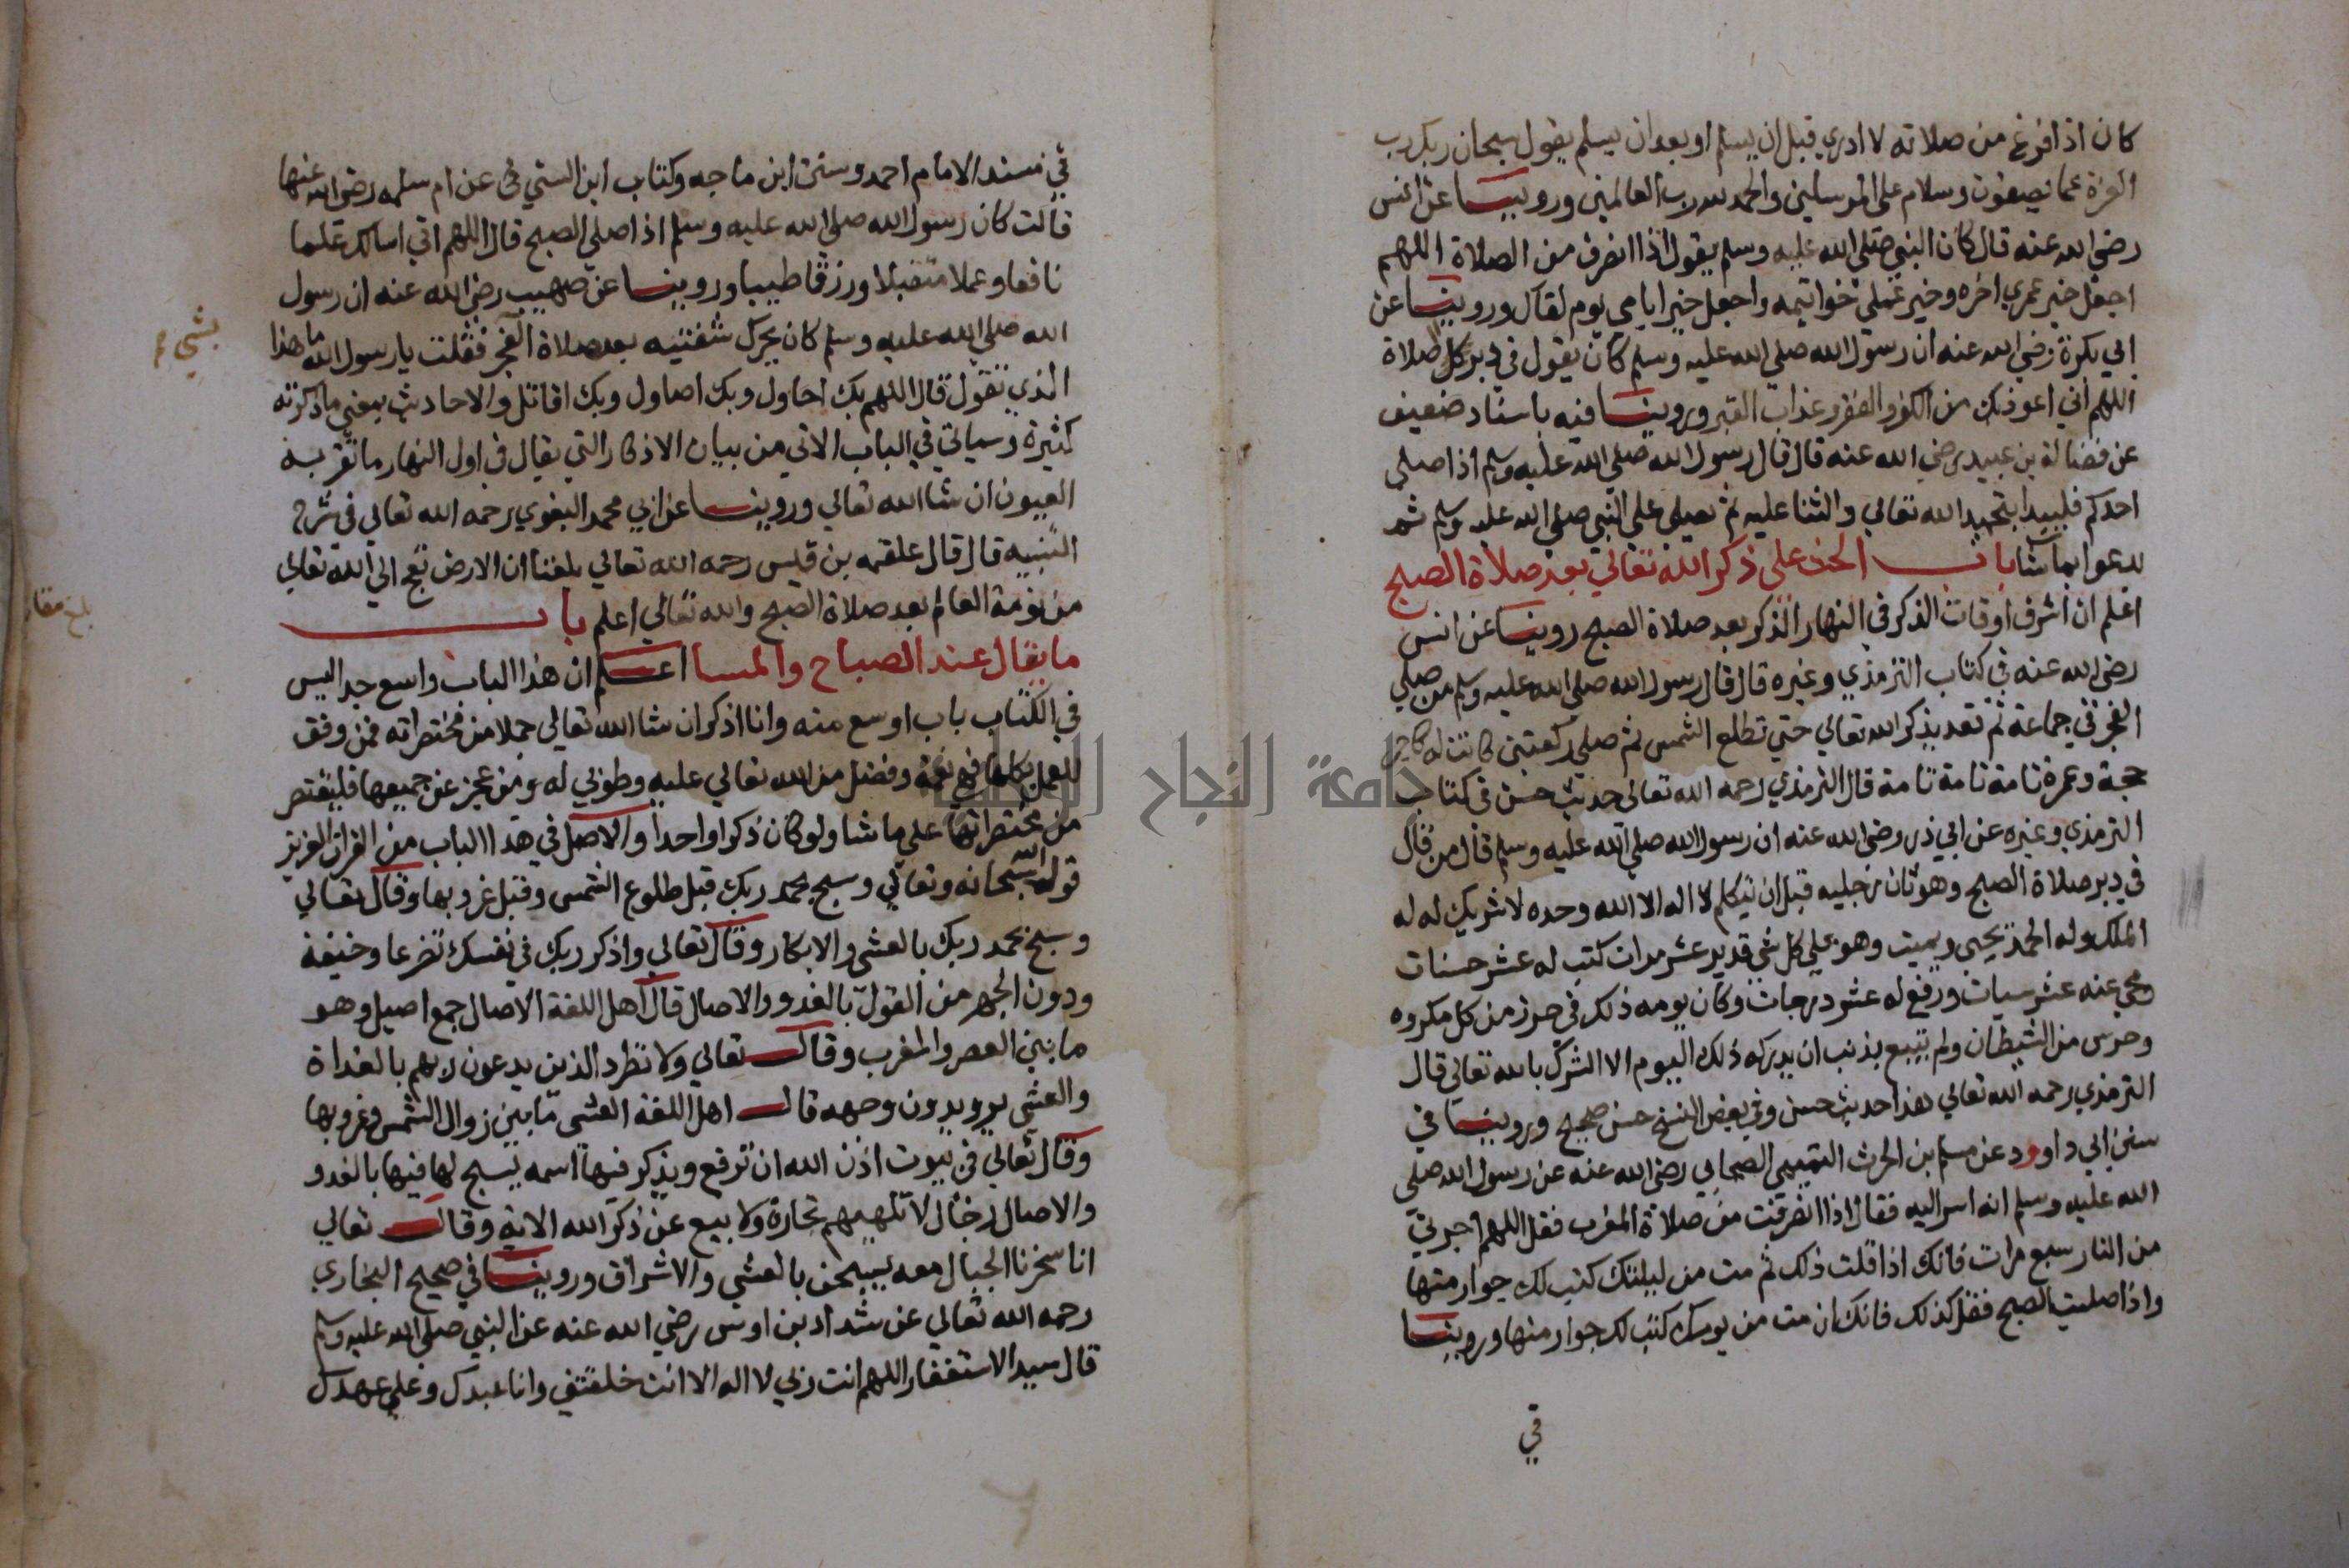 كان اذا فرغ من صلاته لا ادري قبل ان يسلم او بعد ان يسلم يقول سبحان ربك رب
العزة عما يصفون وسلام على المرسلين والحمد لله رب العالمين وروينا عن انس
رضي الله عنه قال كان النبي صلى الله عليه وسلم يقول اذا انصرف من الصلاة اللهم
اجعل خير عمري اخره وخير عملي خواتيمه واجعل خير ايامي يوم لقاك وروينا عن
ابي بكرة رضي الله عنه ان رسول الله صلى الله عليه وسلم كان يقول في دبر كل صلاة
اللهم اني اعوذ بك من الكفر والفقر وعذاب القبر وروينا فيه باسناد ضعيف
عن فضالة بن عبيد رضي الله عنه قال قال رسول الله صلى الله عليه وسلم اذا صلى
احدكم فليبدا بتحميد الله تعالي والثنا عليه ثم يصلي على النبي صلى الله عليه وسلم ثم
يدعوا بما شا باب الحث على ذكر الله تعالي بعد صلاة الصبح
اعلم ان اشرف اوقات الذكر في النهار الذكر بعد صلاة الصبح روينا عن انس
رضي الله عنه في كتاب الترمذي وغيره قال قال رسول الله صلى الله عليه وسلم من صلى
الفجر في جماعة ثم قعد يذكر الله تعالي حتي تطلع الشمس ثم صلى ركعتين كانت له كاجر
حجة وعمرة تامة تامة تامة قال الترمذي رحمه الله تعالى حديث حسن في كتاب
الترمذي وغيره عن ابي ذر رضي الله عنه ان رسول الله صلى الله عليه وسلم قال من قال
في دبر صلاة الصبح وهو ثان رجليه قبل ان يتكلم لا اله الا الله وحده لا شريك له له
الملك وله الحمد يحيي ويميت وهو على كل شي قدير عشر مرات كتب له عشر حسنات
ومحي عنه عشر سيات ورفع له عشر درجات وكان يومه ذلك في حرز من كل مكروه
وحرس من الشيطان ولم يتبع بذنب ان يدركه ذلك اليوم الا الشرك بالله تعالي قال
الترمذي رحمه الله تعالي هذا حديث حسن وفي بعض النسخ حسن صحيح وروينا في
سنن ابي داوود عن مسلم بن الحرث التميمي الصحابي رضي الله عنه عن رسول الله صلى
الله عليه وسلم انه اسر اليه فقال اذا انصرفت من صلاة المغرب فقل اللهم اجرني
من النار سبع مرات فانك اذا قلت ذلك ثم مت من ليلتك كتب لك جوار منها
واذا صليت الصبح فقل كذلك فانك ان مت من يومك كتب لك جوار منها وروينا
في
في مسند الامام احمد وسنن ابن ماجه وكتاب ابن السني عن ام سلمه رضي الله عنها
قالت كان رسول الله صلى الله عليه وسلم اذا صلى الصبح قال اللهم اني اسالك علما
نافعا وعملا متقبلا ورزقا طيبا وروينا عن صهيب رضي الله عنه ان رسول
الله صلى الله عليه وسلم كان يحرك شفتيه بعد صلاة الفجر فقلت يا رسول الله ما هذا
بشي
الذي تقول قال اللهم بك احاول وبك اصاول وبك اقاتل والاحاديث بمعني ما ذكرته
كثيرة وسياتي في الباب الاتي من بيان الاذكار التي تقال في اول النهار ما تقر به
العيون ان شا الله تعالي وروينا عن ابي محمد البغوي رحمه الله تعالي في شرح
التنبيه قال قال علقمه بن قيس رحمه الله تعالي بلغنا ان الارض تعج الي الله تعالي
من نومة العالم بعد صلاة الصبح والله تعالي اعلم باب
بلغ مقابلة
ما يقال عند الصباح والمسا اعلم ان هذا الباب واسع جدا ليس
في الكتاب باب اوسع منه وانا اذكر ان شا الله تعالي جملا من مختصراته فمن وفق
للعمل بكلها فهي نعمة وفضل من الله تعالي عليه وطوبي له ومن عجز عن جميعها فليقتصر
من مختصراتها على ما شا ولو كان ذكرا واحدا والاصل في هذا الباب من القران العزيز
قول الله سبحانه وتعالي وسبح بحمد ربك قبل طلوع الشمس وقبل غروبها وقال تعالي
وسبح بحمد ربك بالعشي والابكار وقال تعالي واذكر ربك في نفسك تضرعا وخيفة
ودون الجهر من القول بالغدو والاصال قال اهل اللغة الاصال جمع اصيل وهو
ما بين العصر والمغرب وقال تعالي ولا تطرد الذين يدعون ربهم بالغداة
والعشي يريدون وجهه قال اهل اللغة العشي ما بين زوال الشمس وغروبها
وقال تعالي في بيوت اذن الله ان ترفع ويذكر فيها اسمه يسبح له فيها بالغدو
والاصال رجال لا تلهيهم تجارة ولا بيع عن ذكر الله الاية وقال تعالي
انا سخرنا الجبال معه يسبحن بالعشي والاشراق وروينا في صحيح البخاري
رحمه الله تعالي عن شداد بن اوس رضي الله عنه عن النبي صلى الله عليه وسلم
قال سيد الاستغفار اللهم انت ربي لا اله الا انت خلقتني وانا عبدك وعلي عهدك
جامعة النجاح الوطنية